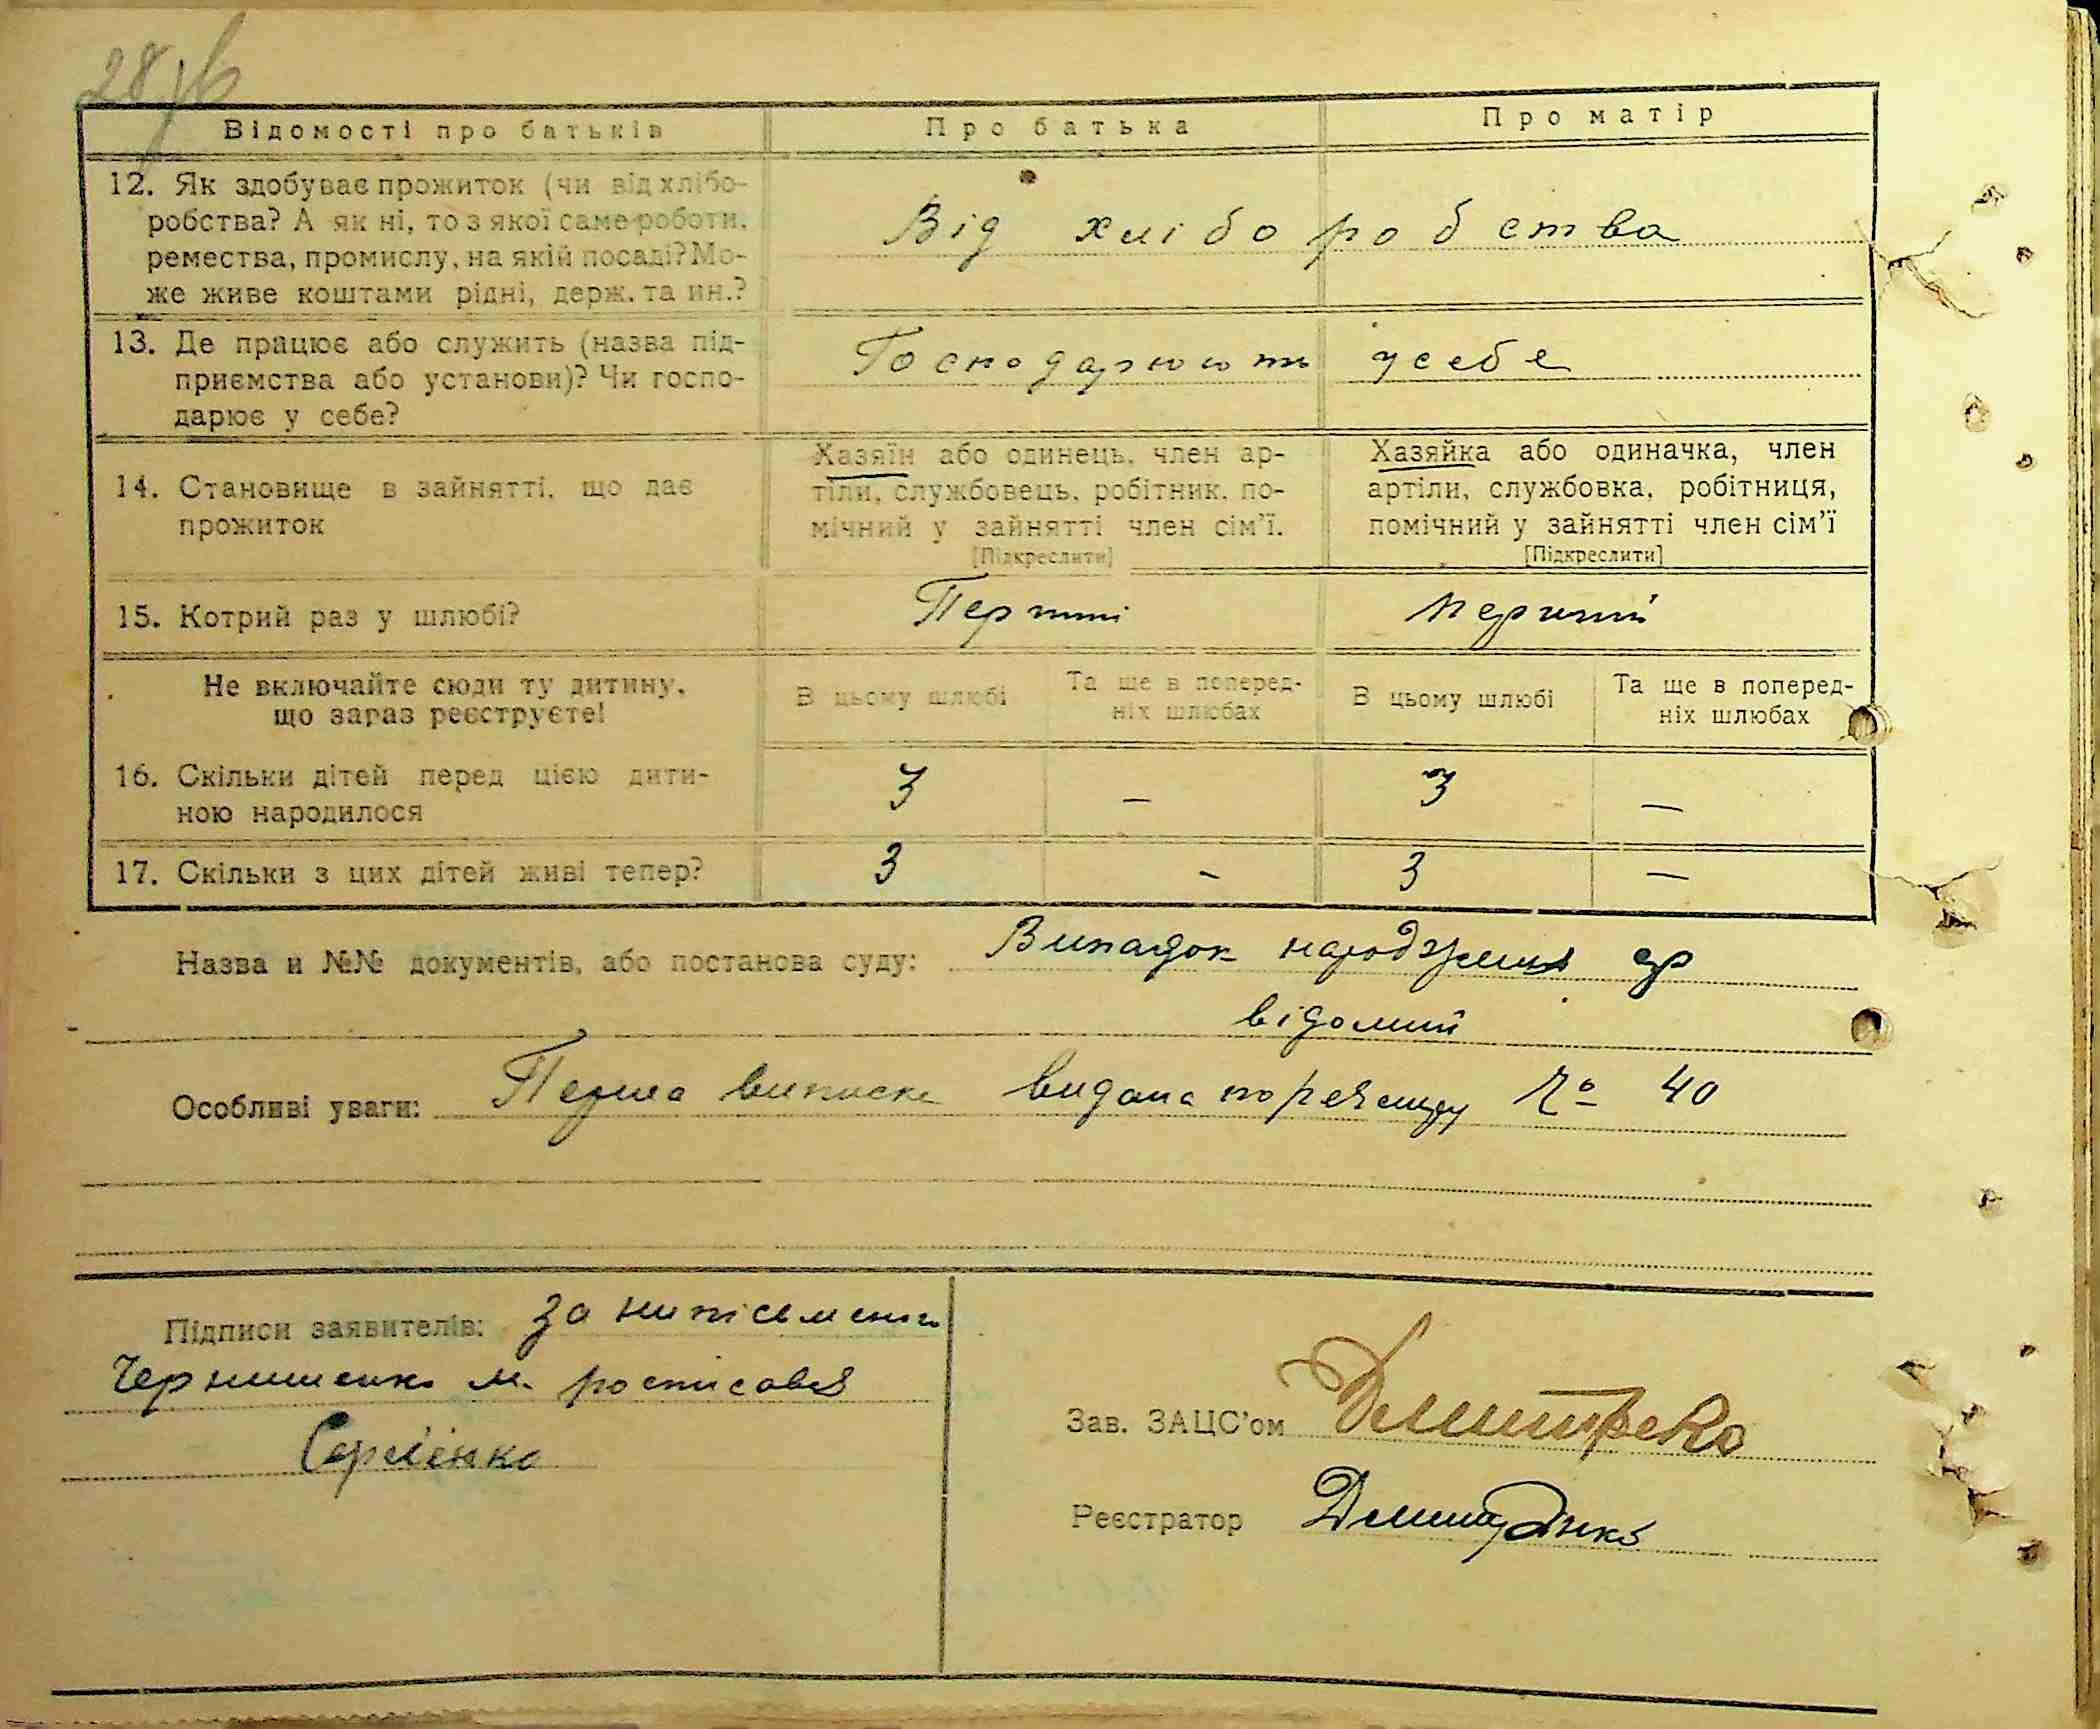 28 зв
Відомості про батьків
Про батька
Про матір
12. Як здобуває прожиток (чи від хлібо-
робства? А як ні, то з якої саме роботи,
ремества, промислу, на якій посаді? Мо-
же живе коштами рідні, держ. та ин.?
Від хліборобства
13. Де працює або служить (назва під-
приємства або установи)? Чи госпо-
дарює у себе?
Господарюють усебе
14. Становище в зайнятті, що дає
прожиток
Хазяїн або одинець, член ар-
тіли, службовець, робітник, по-
мічний у зайнятті член сім'ї.
[Підкреслити]
Хазяйка або одиначка, член
артіли, службовка, робітниця,
помічний у зайнятті член сім'ї
[Підкреслити]
15. Котрий раз у шлюбі?
Перший
перший
Не включайте сюди ту дитину,
що зараз реєструєте!
В цьому шлюбі
Та ще в поперед-
ніх шлюбах
В цьому шлюбі
Та ще в поперед-
ніх шлюбах
16. Скільки дітей перед цією дити-
ною народилося
3 – 3 –
17. Скільки з цих дітей живі тепер?
3 - 3 –
Назва и №№ документів, або постанова суду: Випадок народження
відомий
Особливі уваги: Перша виписка видана по реєстру № 40
Підписи заявителів: За ниписьмен
Чернишенко М. росписався
Сергієнко
Зав. ЗАЦС'ом
Реєстратор